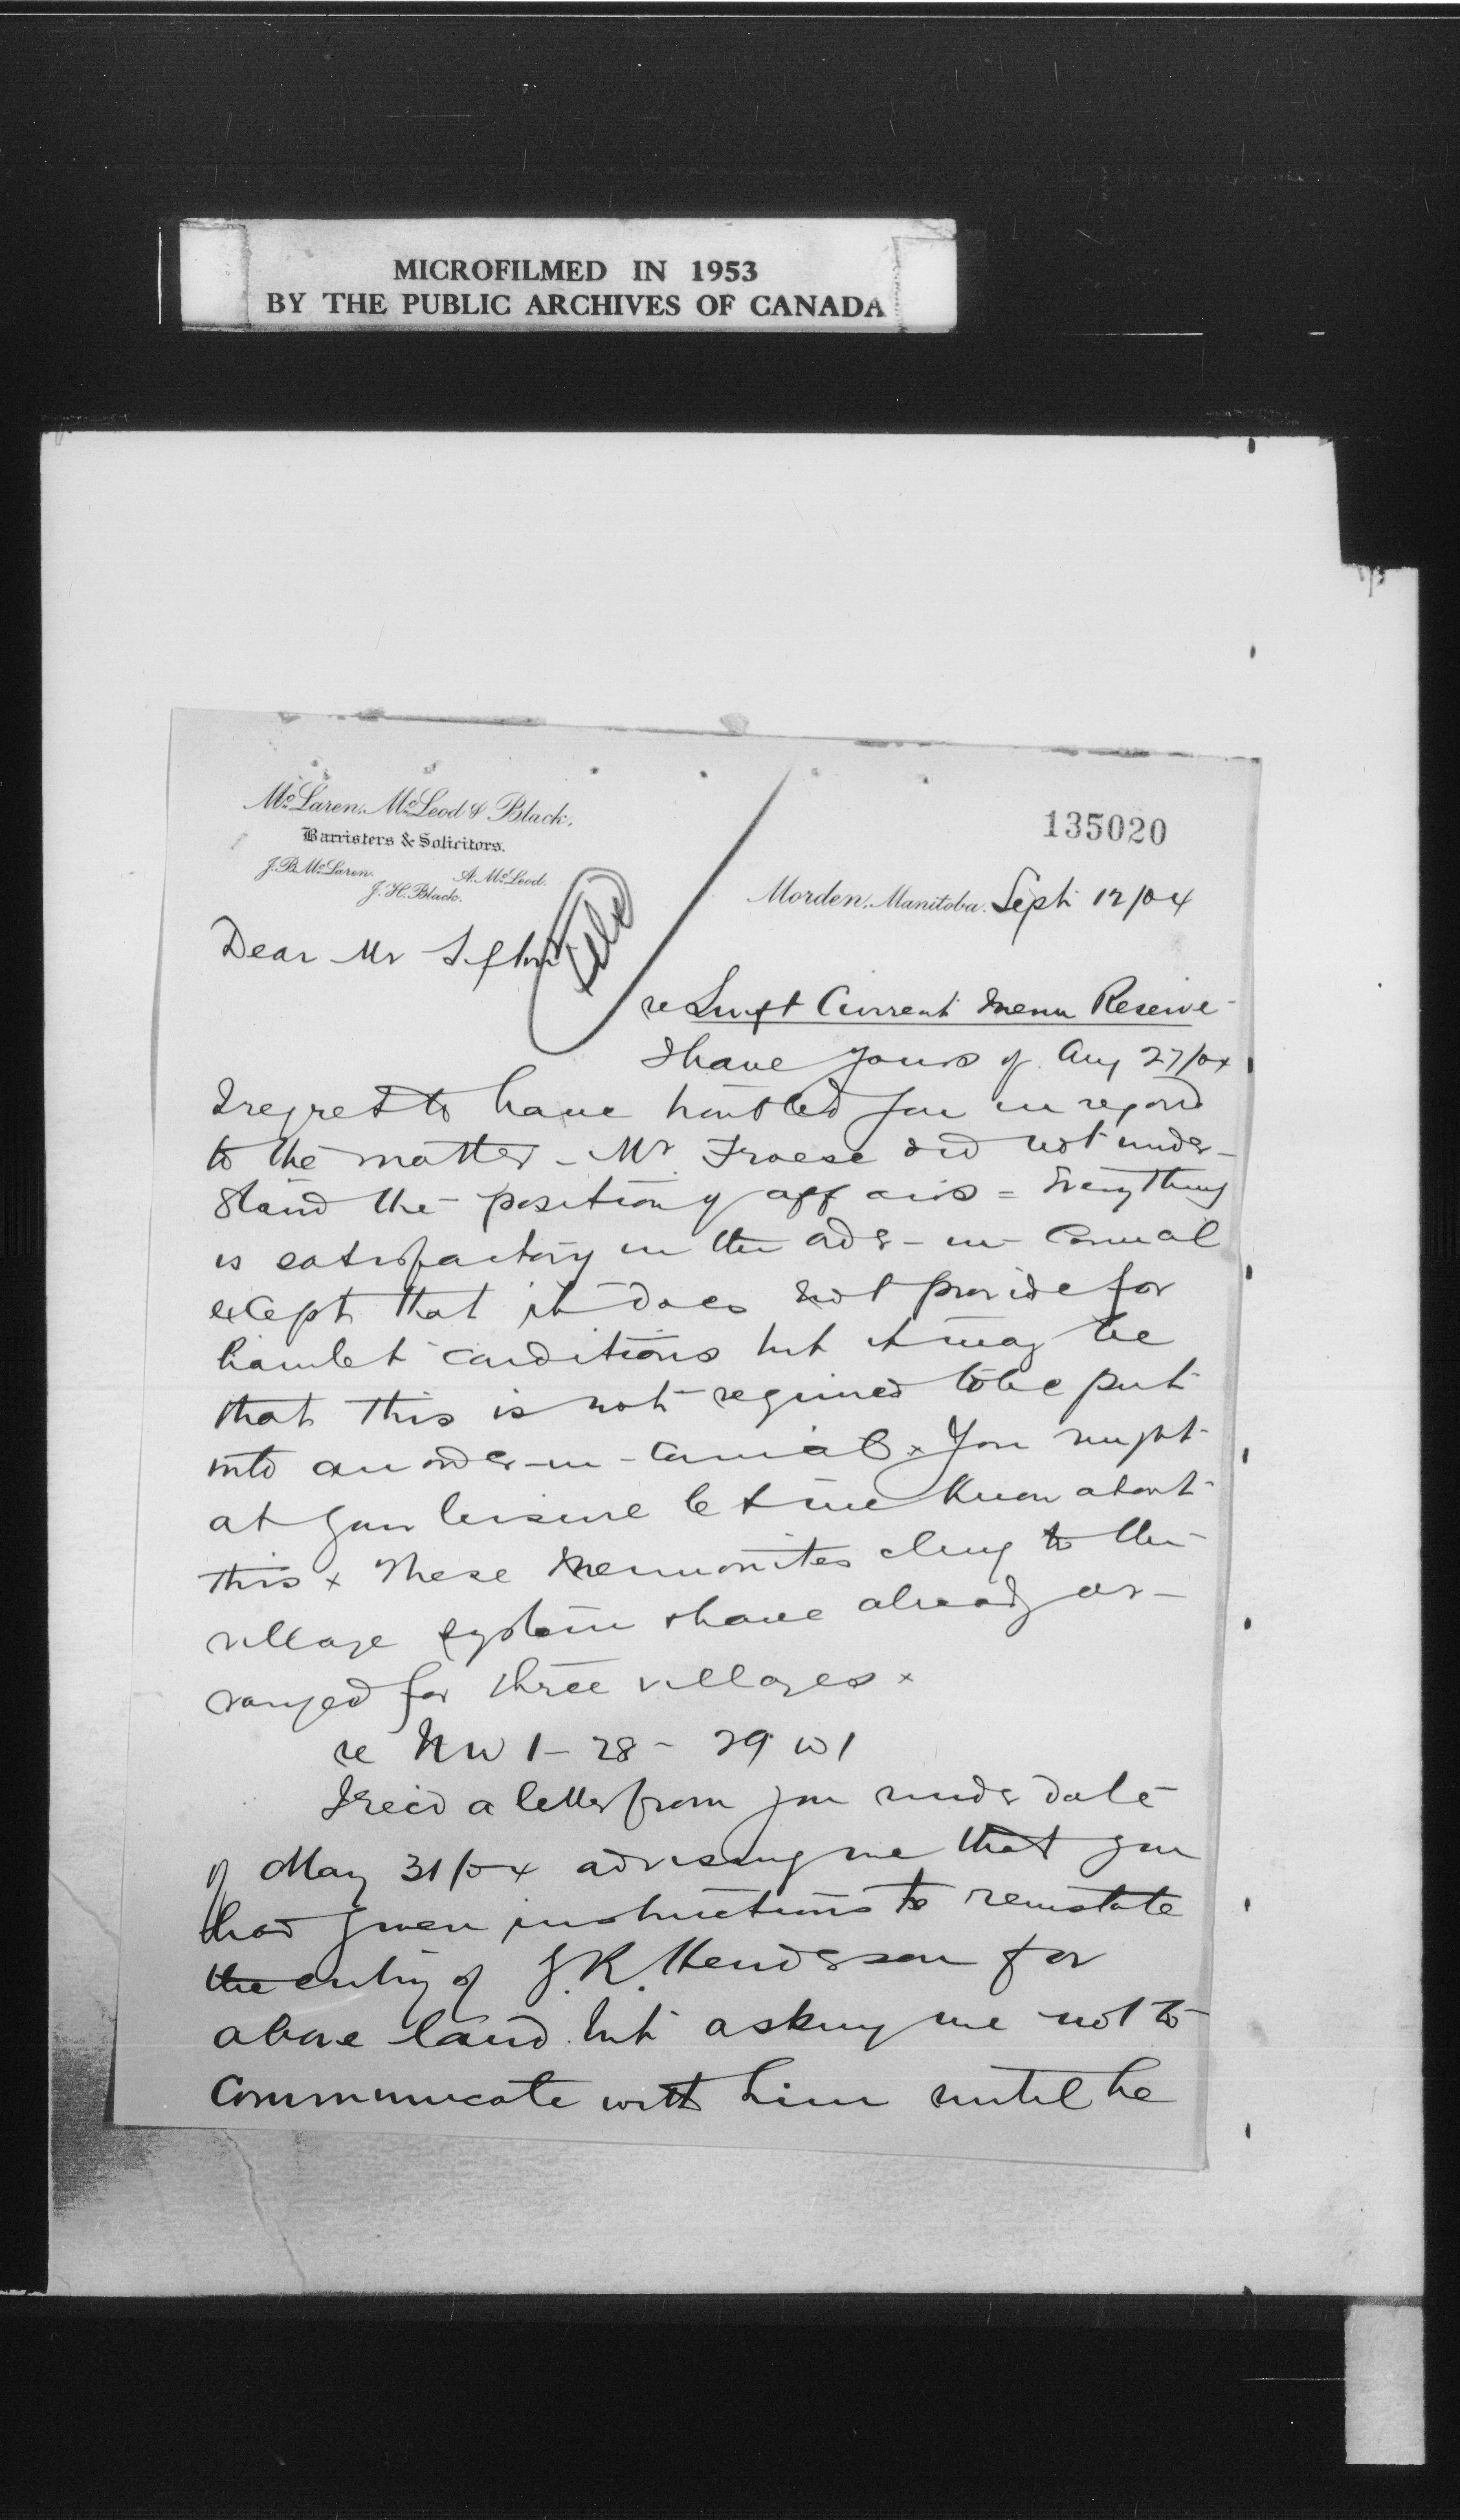 MICROFILMED IN 1953
BY THE PUBLIC ARCHIVES OF CANADA
McLaren, McLeod & Black.
Barristers & Solicitors.
J. B. McLaren. A. McLeod.
J. H. Black.
135020
Morden, Manitoba. Sept 12/04
Dear Mr Sifton
re Swift Current Menn Reserve -
I have yours of Aug 27/04
I regret to have troubled you in regard
to the matter - Mr. Froese did not under-
stand the position of affairs = Everything
is satisfactory in the order-in-Council
except that it does not provide for
hamlet conditions but it may be
that this is not required to be put
into an order-in-Council x You might
at your leisure let me know about
this x These Mennonites cling to the
village system & have already ar-
ranged for three villages x
re NW 1 - 28 - 29 W 1
I rec'd a letter from you under date
of May 31/04 advising me that you
had given instructions to reinstate
the entry of J. R. Henderson for
above land but asking me not to
communicate with him until he